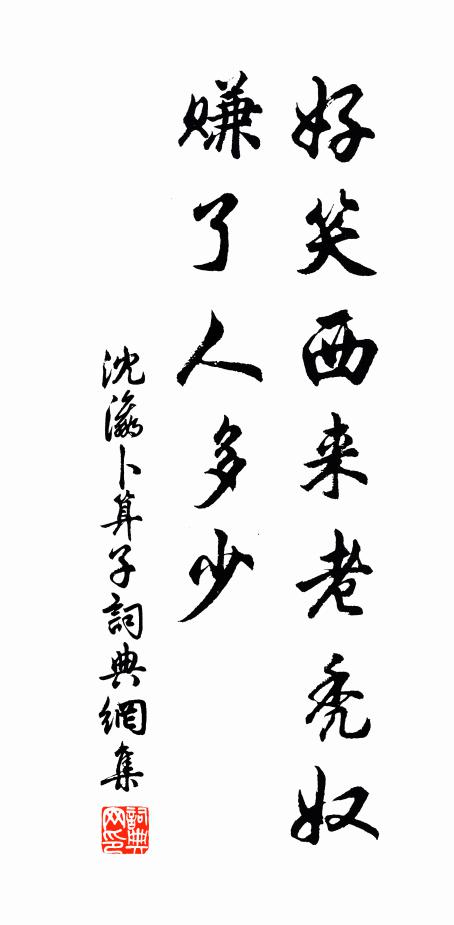 好笑西来老秃奴
赚了人多少
沈瀛卜算子詞典網集
詞典网印